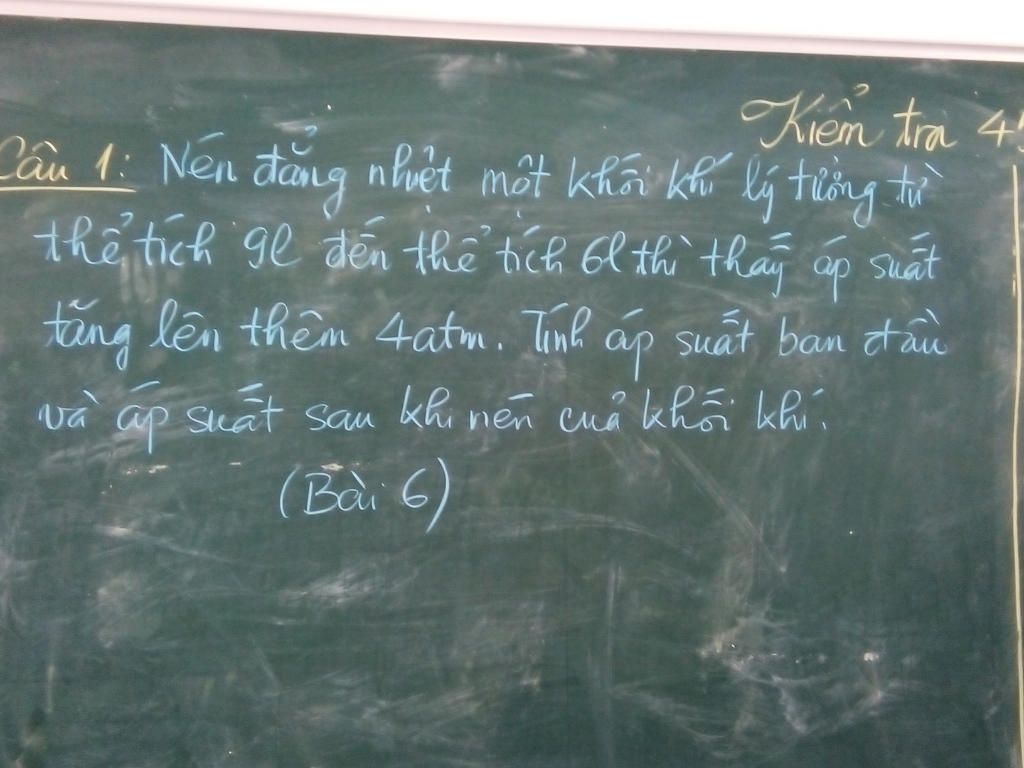 Kiểm tra 4
Câu 1: Nén đẳng nhiệt một khối khí lý tưởng từ
thể tích 9l đến thể tích 6l thì thấy áp suất
tăng lên thêm 4atm. Tính áp suất ban đầu
và áp suất sau khi nén của khối khí.
(Bài 6)